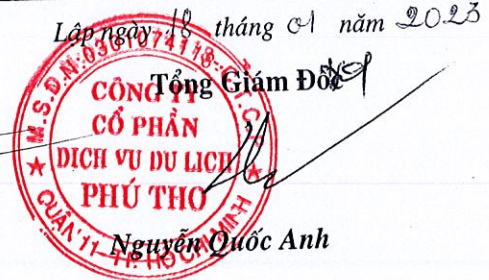 Lập ngày 18 tháng 01 năm 2023
Tổng Giám Đốc
M.S.D.N:0301074118-C.T.C.P
CÔNG TY
CỔ PHẦN
DỊCH VỤ DU LỊCH
PHÚ THỌ
QUẬN 11 - TP. HỒ CHÍ MINH
Nguyễn Quốc Anh